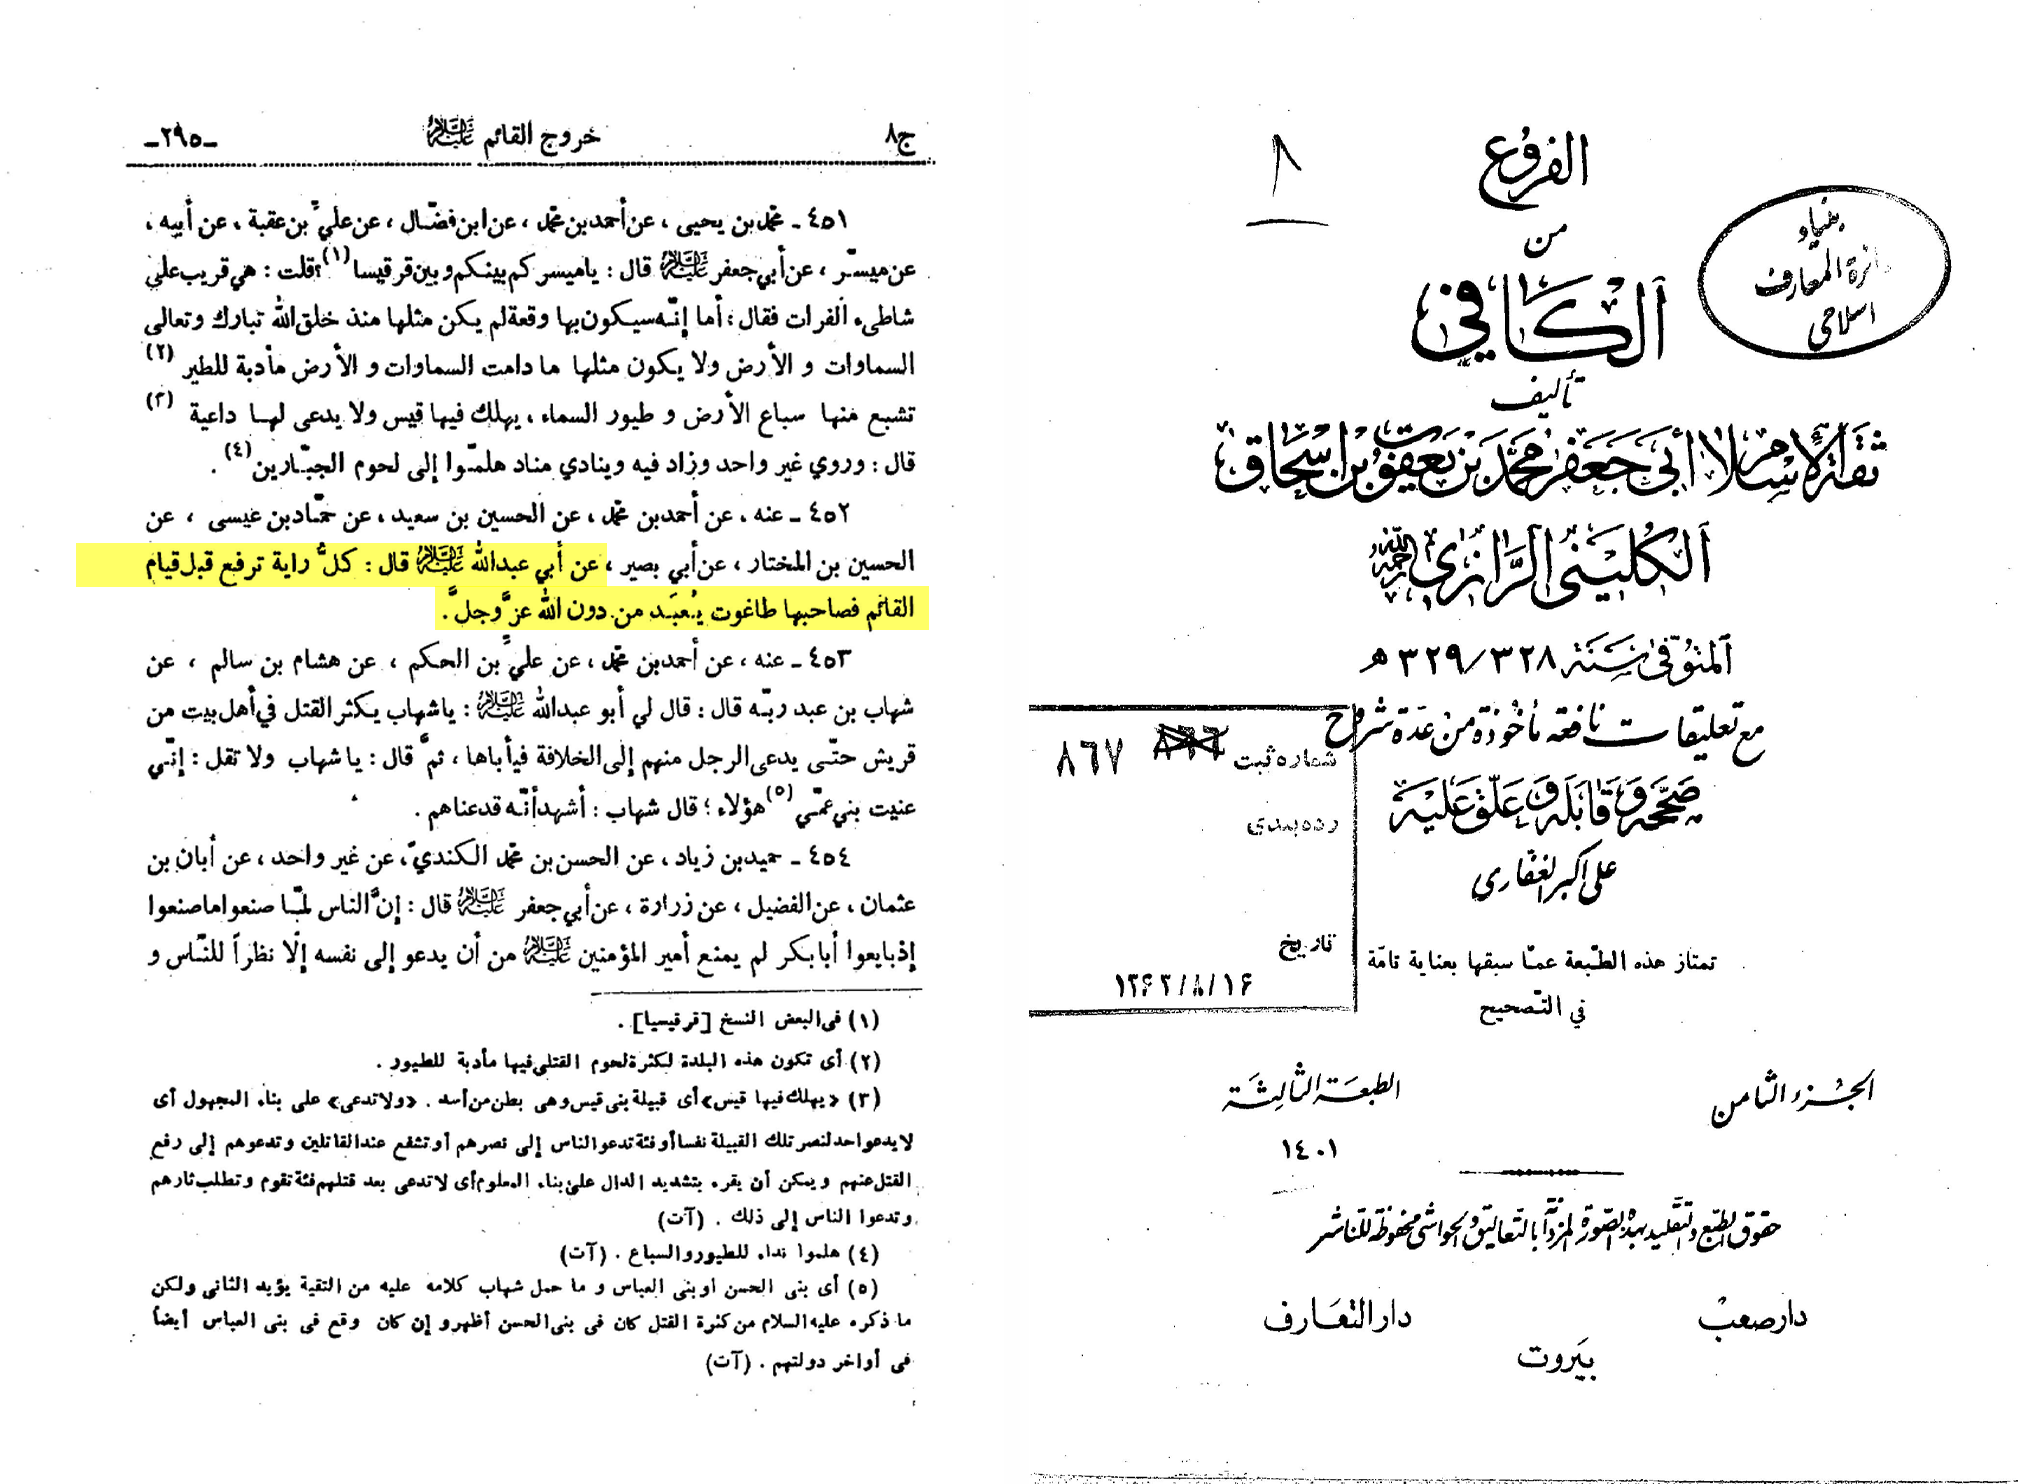 الفروع
من
الكافي
تأليف
ثقة الإسلام أبي جعفر محمد بن يعقوب بن إسحاق
الكليني الرازي رحمه الله
المتوفى سنة ٣٢٨/٣٢٩ هـ
مع تعليقات نافعة مأخوذة من عدة شروح
صححه وقابله وعلق عليه
علي اكبر الغفاري
تمتاز هذه الطبعة عمّا سبقها بعناية تامّة
في التصحيح
الجزء الثامن
الطبعة الثالثة
١٤٠١
حقوق الطبع والتقليد بهذه الصورة المزدانة بالتعاليق والحواشي محفوظة للناشر
دار صعب
دار التعارف
بيروت
٨
بنياد
دائرة المعارف
اسلامي
شماره ثبت ٨٦٧
رده بندى
تاريخ
١٣٦٢/٨/١٦
ج٨ خروج القائم عليه السلام -٢٩٥-
٤٥١ - محمد بن يحيى ، عن أحمد بن محمد ، عن ابن فضّال ، عن عليّ بن عقبة ، عن أبيه ،
عن ميسّر ، عن أبي جعفر عليه السلام قال : يا ميسر كم بينكم وبين قرقيسا (١) ؟ قلت : هي قريب على
شاطىء الفرات فقال : أما إنّه سيكون بها وقعة لم يكن مثلها منذ خلق الله تبارك وتعالى
السماوات و الأرض ولا يكون مثلها ما دامت السماوات و الأرض مأدبة للطير (٢)
تشبع منها سباع الأرض و طيور السماء ، يهلك فيها قيس ولا يدعى لها داعية (٣)
قال : وروي غير واحد وزاد فيه وينادي مناد هلمّوا إلى لحوم الجبّارين (٤) .
٤٥٢ - عنه ، عن أحمد بن محمد ، عن الحسين بن سعيد ، عن حمّاد بن عيسى ، عن
الحسين بن المختار ، عن أبي بصير ، عن أبي عبدالله عليه السلام قال : كلّ راية ترفع قبل قيام
القائم فصاحبها طاغوت يُعبَد من دون الله عزَّ وجلَّ .
٤٥٣ - عنه ، عن أحمد بن محمد ، عن عليّ بن الحكم ، عن هشام بن سالم ، عن
شهاب بن عبد ربّه قال : قال لي أبو عبدالله عليه السلام : يا شهاب يكثر القتل في أهل بيت من
قريش حتّى يدعى الرجل منهم إلى الخلافة فيأباها ، ثمَّ قال : يا شهاب ولا تقل : إنّي
عنيت بني عمّي (٥) هؤلاء ؛ قال شهاب : أشهد أنّه قد عناهم .
٤٥٤ - حميد بن زياد ، عن الحسن بن محمد الكنديّ ، عن غير واحد ، عن أبان بن
عثمان ، عن الفضيل ، عن زرارة ، عن أبي جعفر عليه السلام قال : إنَّ الناس لمّا صنعوا ما صنعوا
إذ بايعوا أبا بكر لم يمنع أمير المؤمنين عليه السلام من أن يدعو إلى نفسه إلّا نظراً للنّاس و
(١) فى البعض النسخ [قرقيسيا] .
(٢) أى تكون هذه البلدة لكثرة لحوم القتلى فيها مأدبة للطيور .
(٣) «يهلك فيها قيس» أى قبيلة بنى قيس وهى بطن من أسد . «ولا تدعى» على بناء المجهول أى
لا يدعو احد لنصر تلك القبيلة نفسا أو فئة تدعو الناس إلى نصرهم أو تشفع عند القاتلين وتدعوهم إلى رفع
القتل عنهم ويمكن أن يقرء بتشديد الدال على بناء المعلوم أى لا تدعى بعد قتلهم فئة تقوم وتطلب ثارهم
وتدعوا الناس إلى ذلك . (آت)
(٤) هلموا نداء للطيور والسباع . (آت)
(٥) أى بنى الحسن او بنى العباس و ما حمل شهاب كلامه عليه من التقية يؤيد الثانى ولكن
ما ذكره عليه السلام من كثرة القتل كان فى بنى الحسن أظهر و إن كان وقع فى بنى العباس أيضاً
فى أواخر دولتهم . (آت)